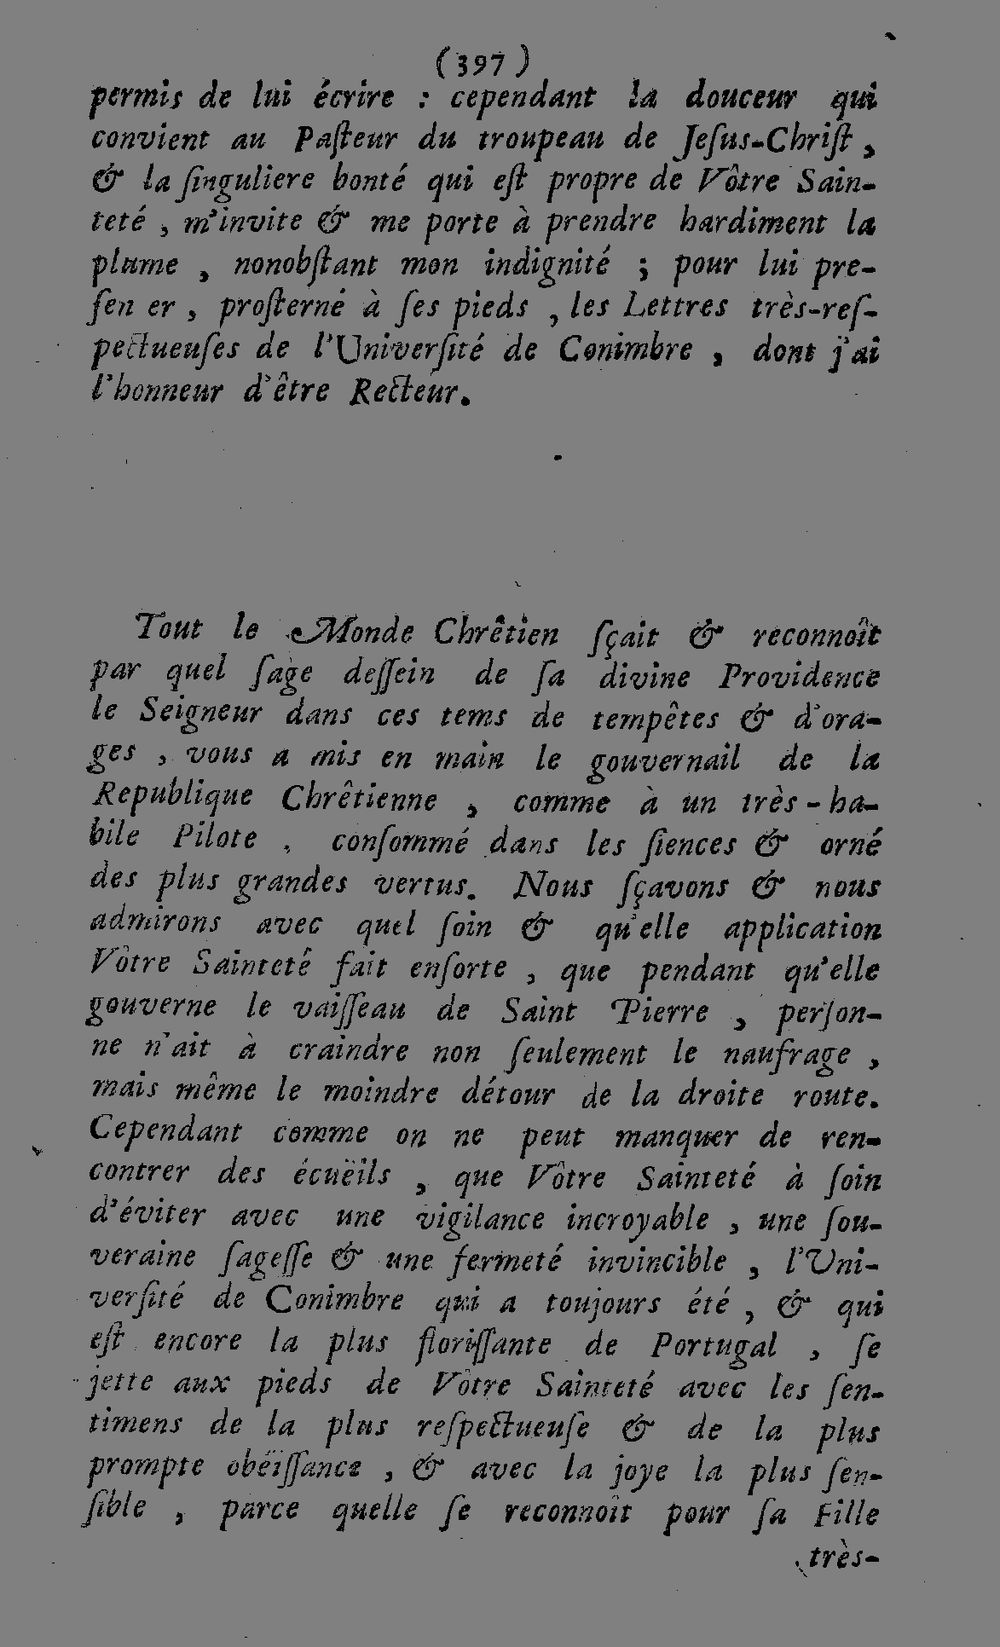 (397)
permis de lui écrire : cependant la douceur qui
convient au Paſteur du troupeau de Jeſus-Chriſt,
& la ſinguliere bonté qui eſt propre de Vôtre Sain-
teté, m'invite & me porte à prendre hardiment la
plume, nonobſtant mon indignité ; pour lui pre-
ſen er, proſterné à ſes pieds, les Lettres très-reſ-
pectueuſes de l'Univerſité de Conimbre, dont j'ai
l'honneur d'être Recteur.
Tout le Monde Chrêtien ſçait & reconnoît
par quel ſage deſſein de ſa divine Providence
le Seigneur dans ces tems de tempêtes & d'ora-
ges, vous a mis en main le gouvernail de la
Republique Chrêtienne, comme à un très-ha-
bile Pilote, conſommé dans les ſiences & orné
des plus grandes vertus. Nous ſçavons & nous
admirons avec quel ſoin & qu'elle application
Vôtre Sainteté fait enſorte, que pendant qu'elle
gouverne le vaiſſeau de Saint Pierre, perſon-
ne n'ait à craindre non ſeulement le naufrage,
mais même le moindre détour de la droite route.
Cependant comme on ne peut manquer de ren-
contrer des écuëils, que Vôtre Sainteté à ſoin
d'éviter avec une vigilance incroyable, une ſou-
veraine ſageſſe & une fermeté invincible, l'Uni-
verſité de Conimbre qui a toujours été, & qui
eſt encore la plus floriſſante de Portugal, ſe
jette aux pieds de Vôtre Sainteté avec les ſen-
timens de la plus reſpectueuſe & de la plus
prompte obéïſſance, & avec la joye la plus ſen-
ſible, parce quelle ſe reconnoît pour ſa Fille
très-